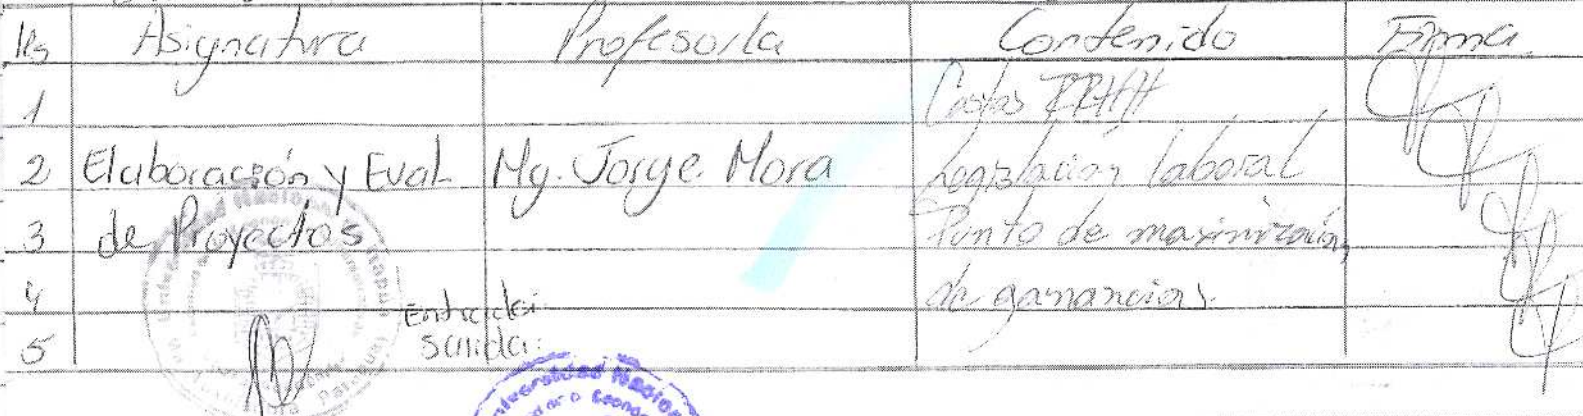 Hs Asignatura Profesor/a Contenido Firma
1 Costos RRHH
2 Elaboración y Eval Mg. Jorge Mora Legislación laboral
3 de Proyectos Punto de maximización
4 de ganancias.
Entrada:
5 Salida:
Universidad Nacional